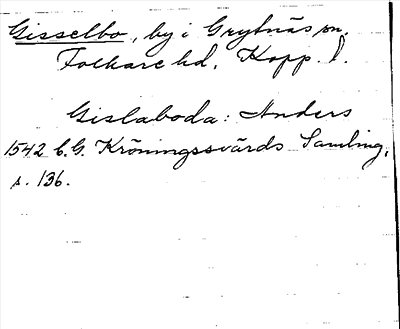 Gisselbo, by i Grytnäs sn.
Folkare hd, Kopp. l.
Gislaboda: Anders
1542 C.G. Kröningssvärds Samling,
s. 136.